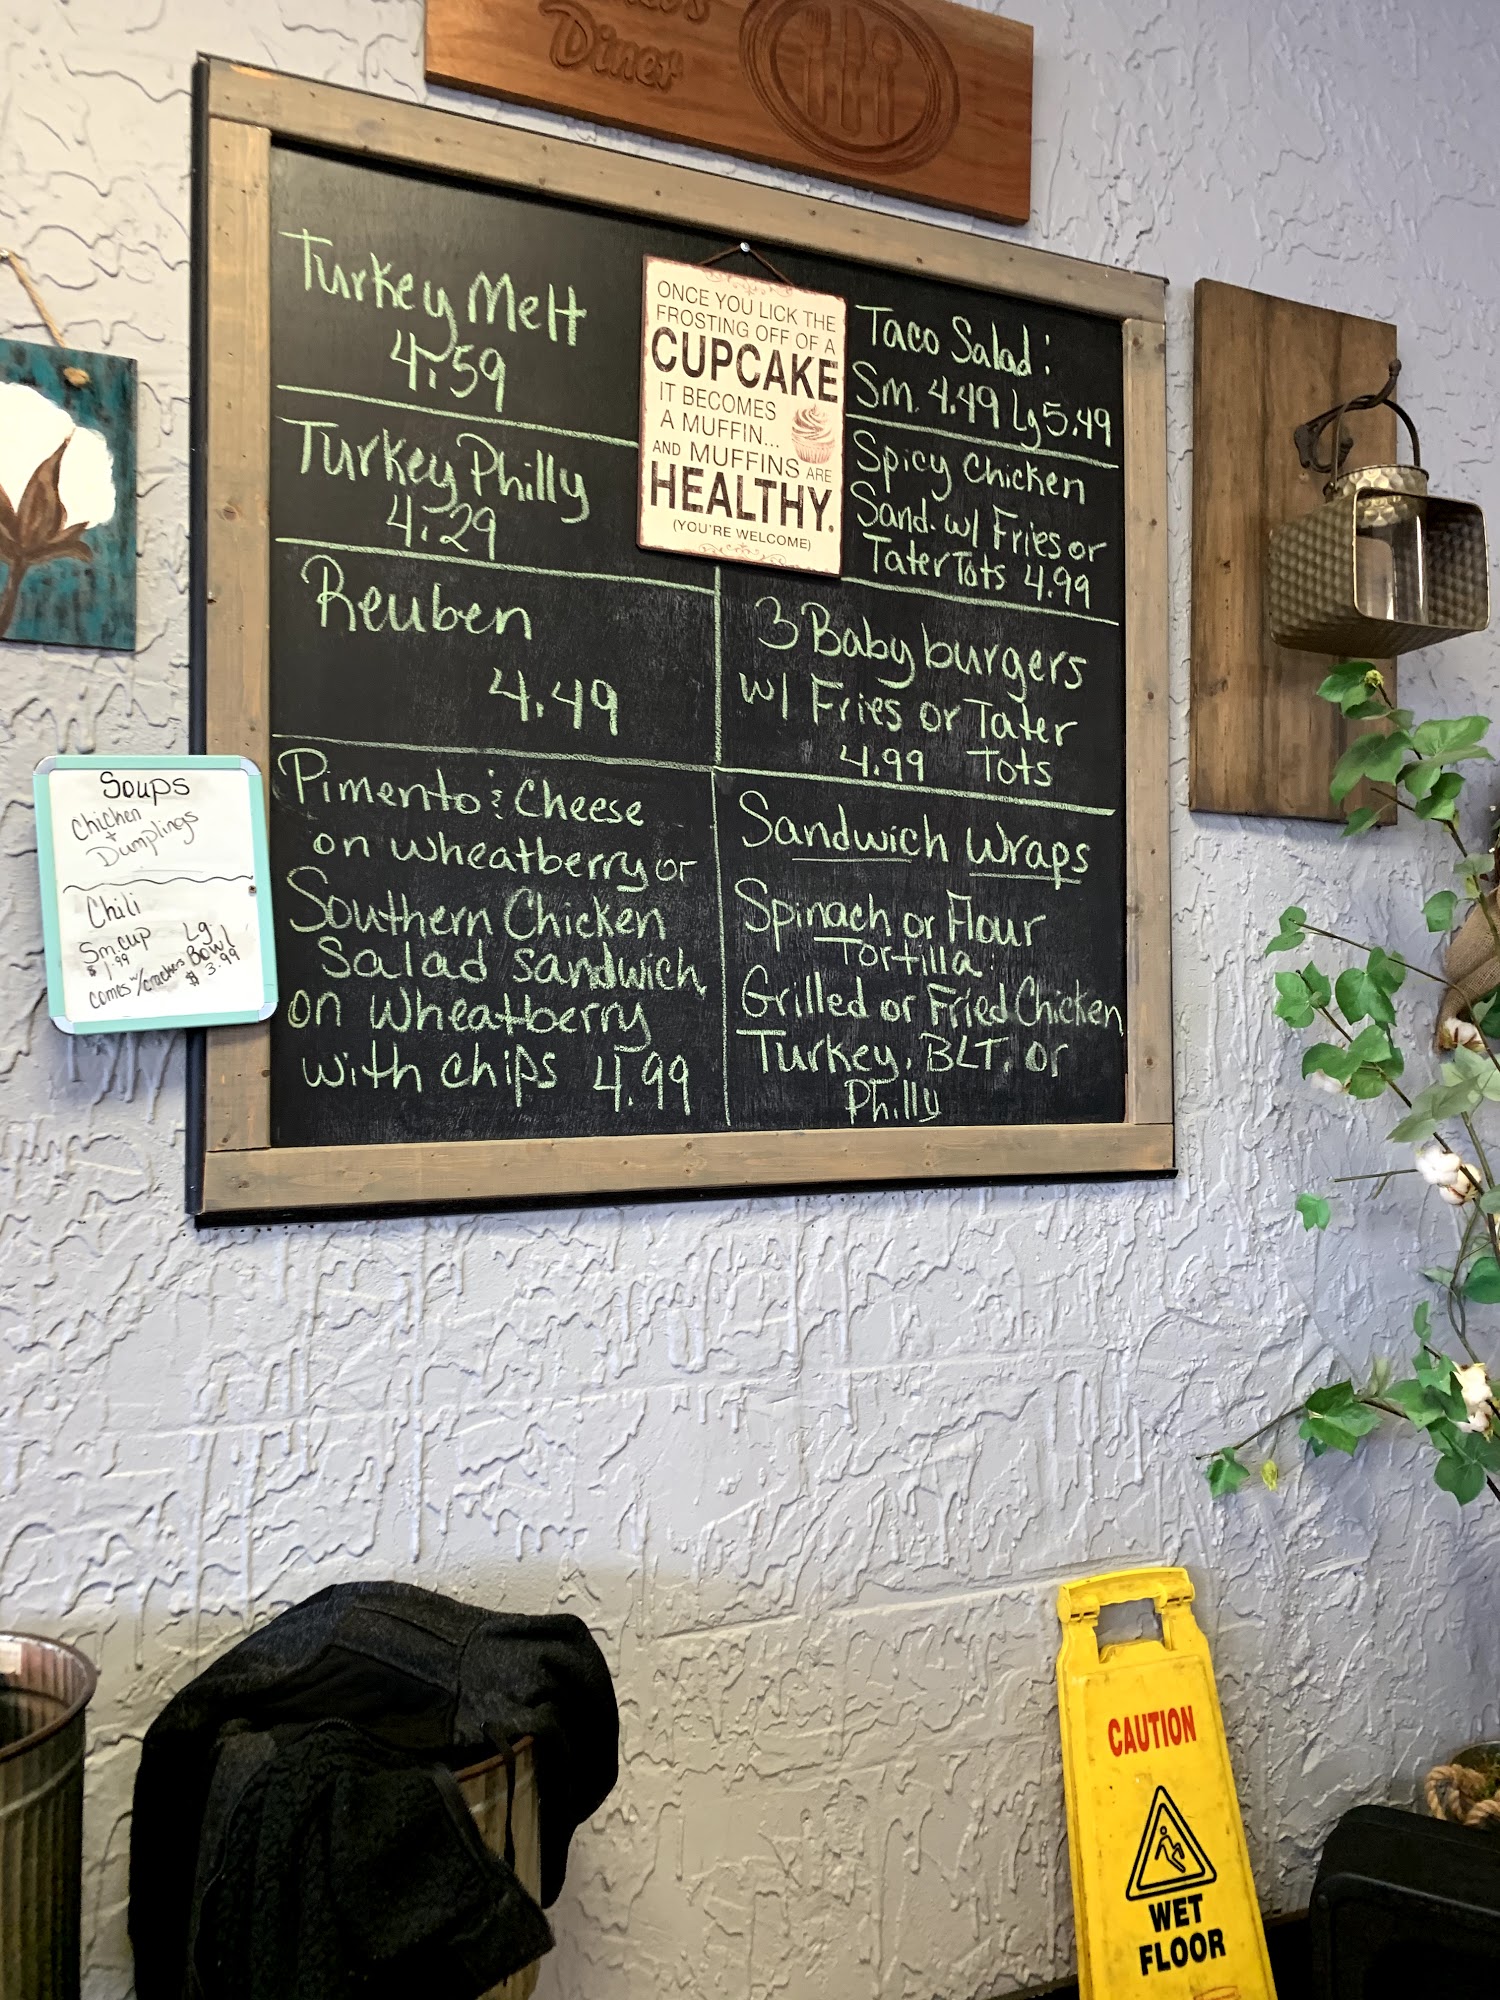 Diner
Turkey Melt
4.59
Turkey Philly
4.29
Reuben
4.49
Pimento & Cheese
on wheatberry or
Southern Chicken
Salad sandwich
on wheatberry
with chips 4.99
ONCE YOU LICK THE
FROSTING OFF OF A
CUPCAKE
IT BECOMES
A MUFFIN...
AND MUFFINS ARE
HEALTHY.
(YOU'RE WELCOME)
Taco Salad:
Sm. 4.49 Lg 5.49
Spicy Chicken
Sand. w/ Fries or
Tater Tots 4.99
3 Baby burgers
w/ Fries or Tater
4.99 Tots
Sandwich Wraps
Spinach or Flour
Tortilla
Grilled or Fried Chicken
Turkey, BLT, or
Philly
Soups
Chicken
+
Dumplings
Chili
Sm. cup Lg
$1.99 Bowl
comes w/crackers $3.99
CAUTION
WET
FLOOR